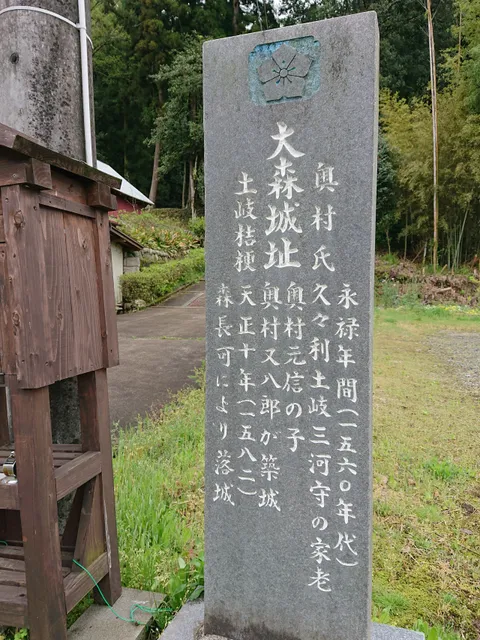 大森城址
土岐桔梗
奥村氏
永禄年間(一五六〇年代)
久々利土岐三河守の家老
奥村元信の子
奥村又八郎が築城
天正十年(一五八二)
森長可により落城